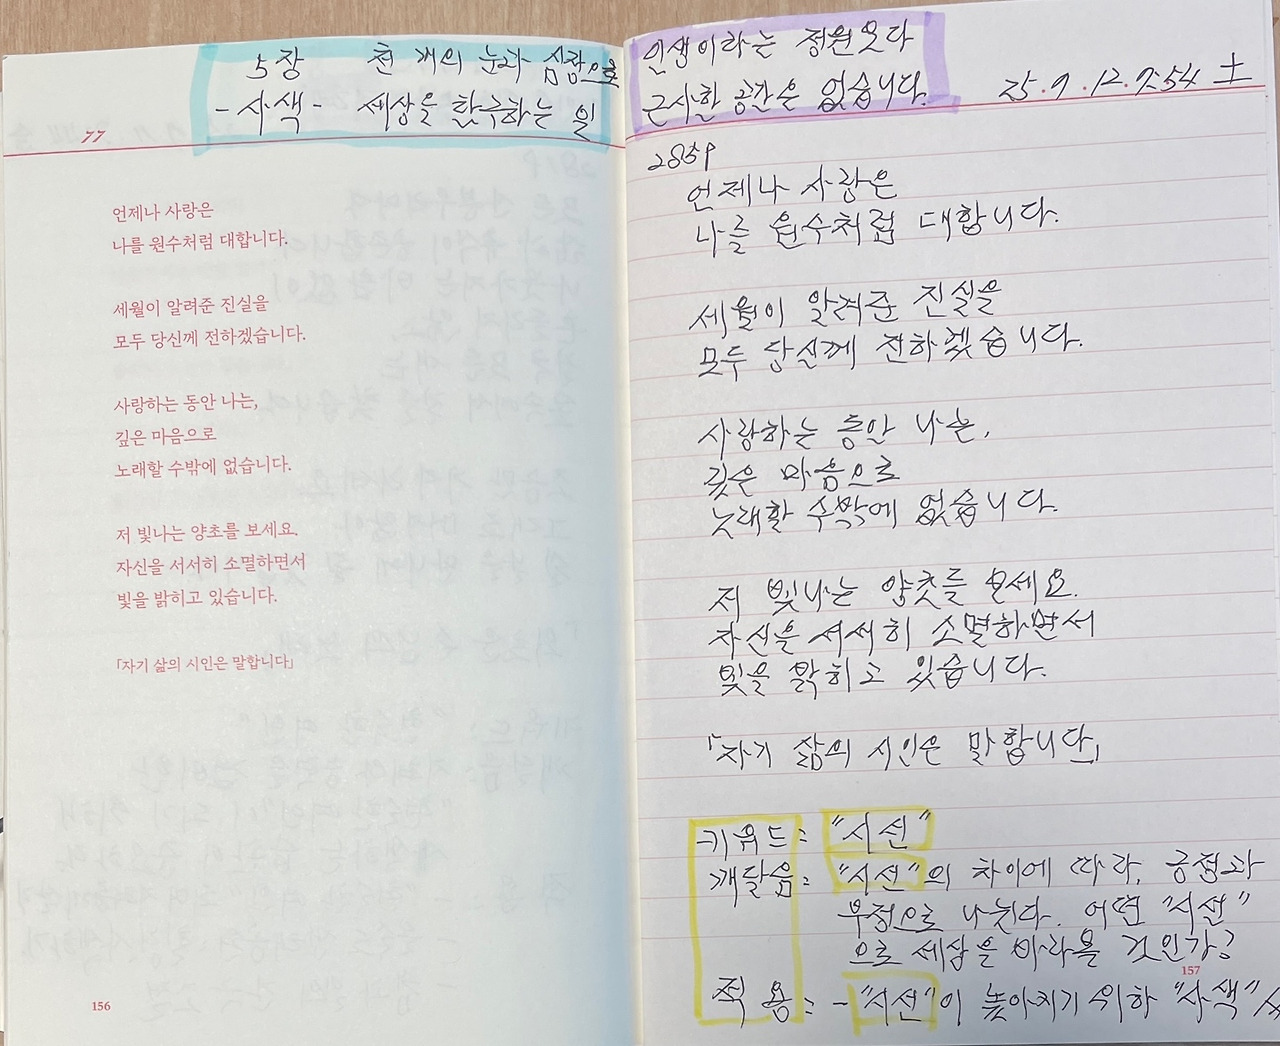 5장 천 개의 눈과 심장으로
-사색- 세상을 탐구하는 일
77
언제나 사랑은
나를 원수처럼 대합니다.
세월이 알려준 진실을
모두 당신께 전하겠습니다.
사랑하는 동안 나는,
깊은 마음으로
노래할 수밖에 없습니다.
저 빛나는 양초를 보세요.
자신을 서서히 소멸하면서
빛을 밝히고 있습니다.
「자기 삶의 시인은 말합니다」
156
인생이라는 정원보다
근사한 공간은 없습니다.
25.7.12.7:54 土
285P
언제나 사랑은
나를 원수처럼 대합니다.
세월이 알려준 진실을
모두 당신께 전하겠습니다.
사랑하는 동안 나는,
깊은 마음으로
노래할 수밖에 없습니다.
저 빛나는 양촛를 보세요.
자신을 서서히 소멸하면서
빛을 밝히고 있습니다.
「자기 삶의 시인은 말합니다」
키워드: "시선"
깨달음: "시선"의 차이에 따라, 긍정과
부정으로 나뉜다. 어떤 "시선"
으로 세상을 바라볼 것인가?
157
적용: - "시선"이 높아지기 위한 "사색"